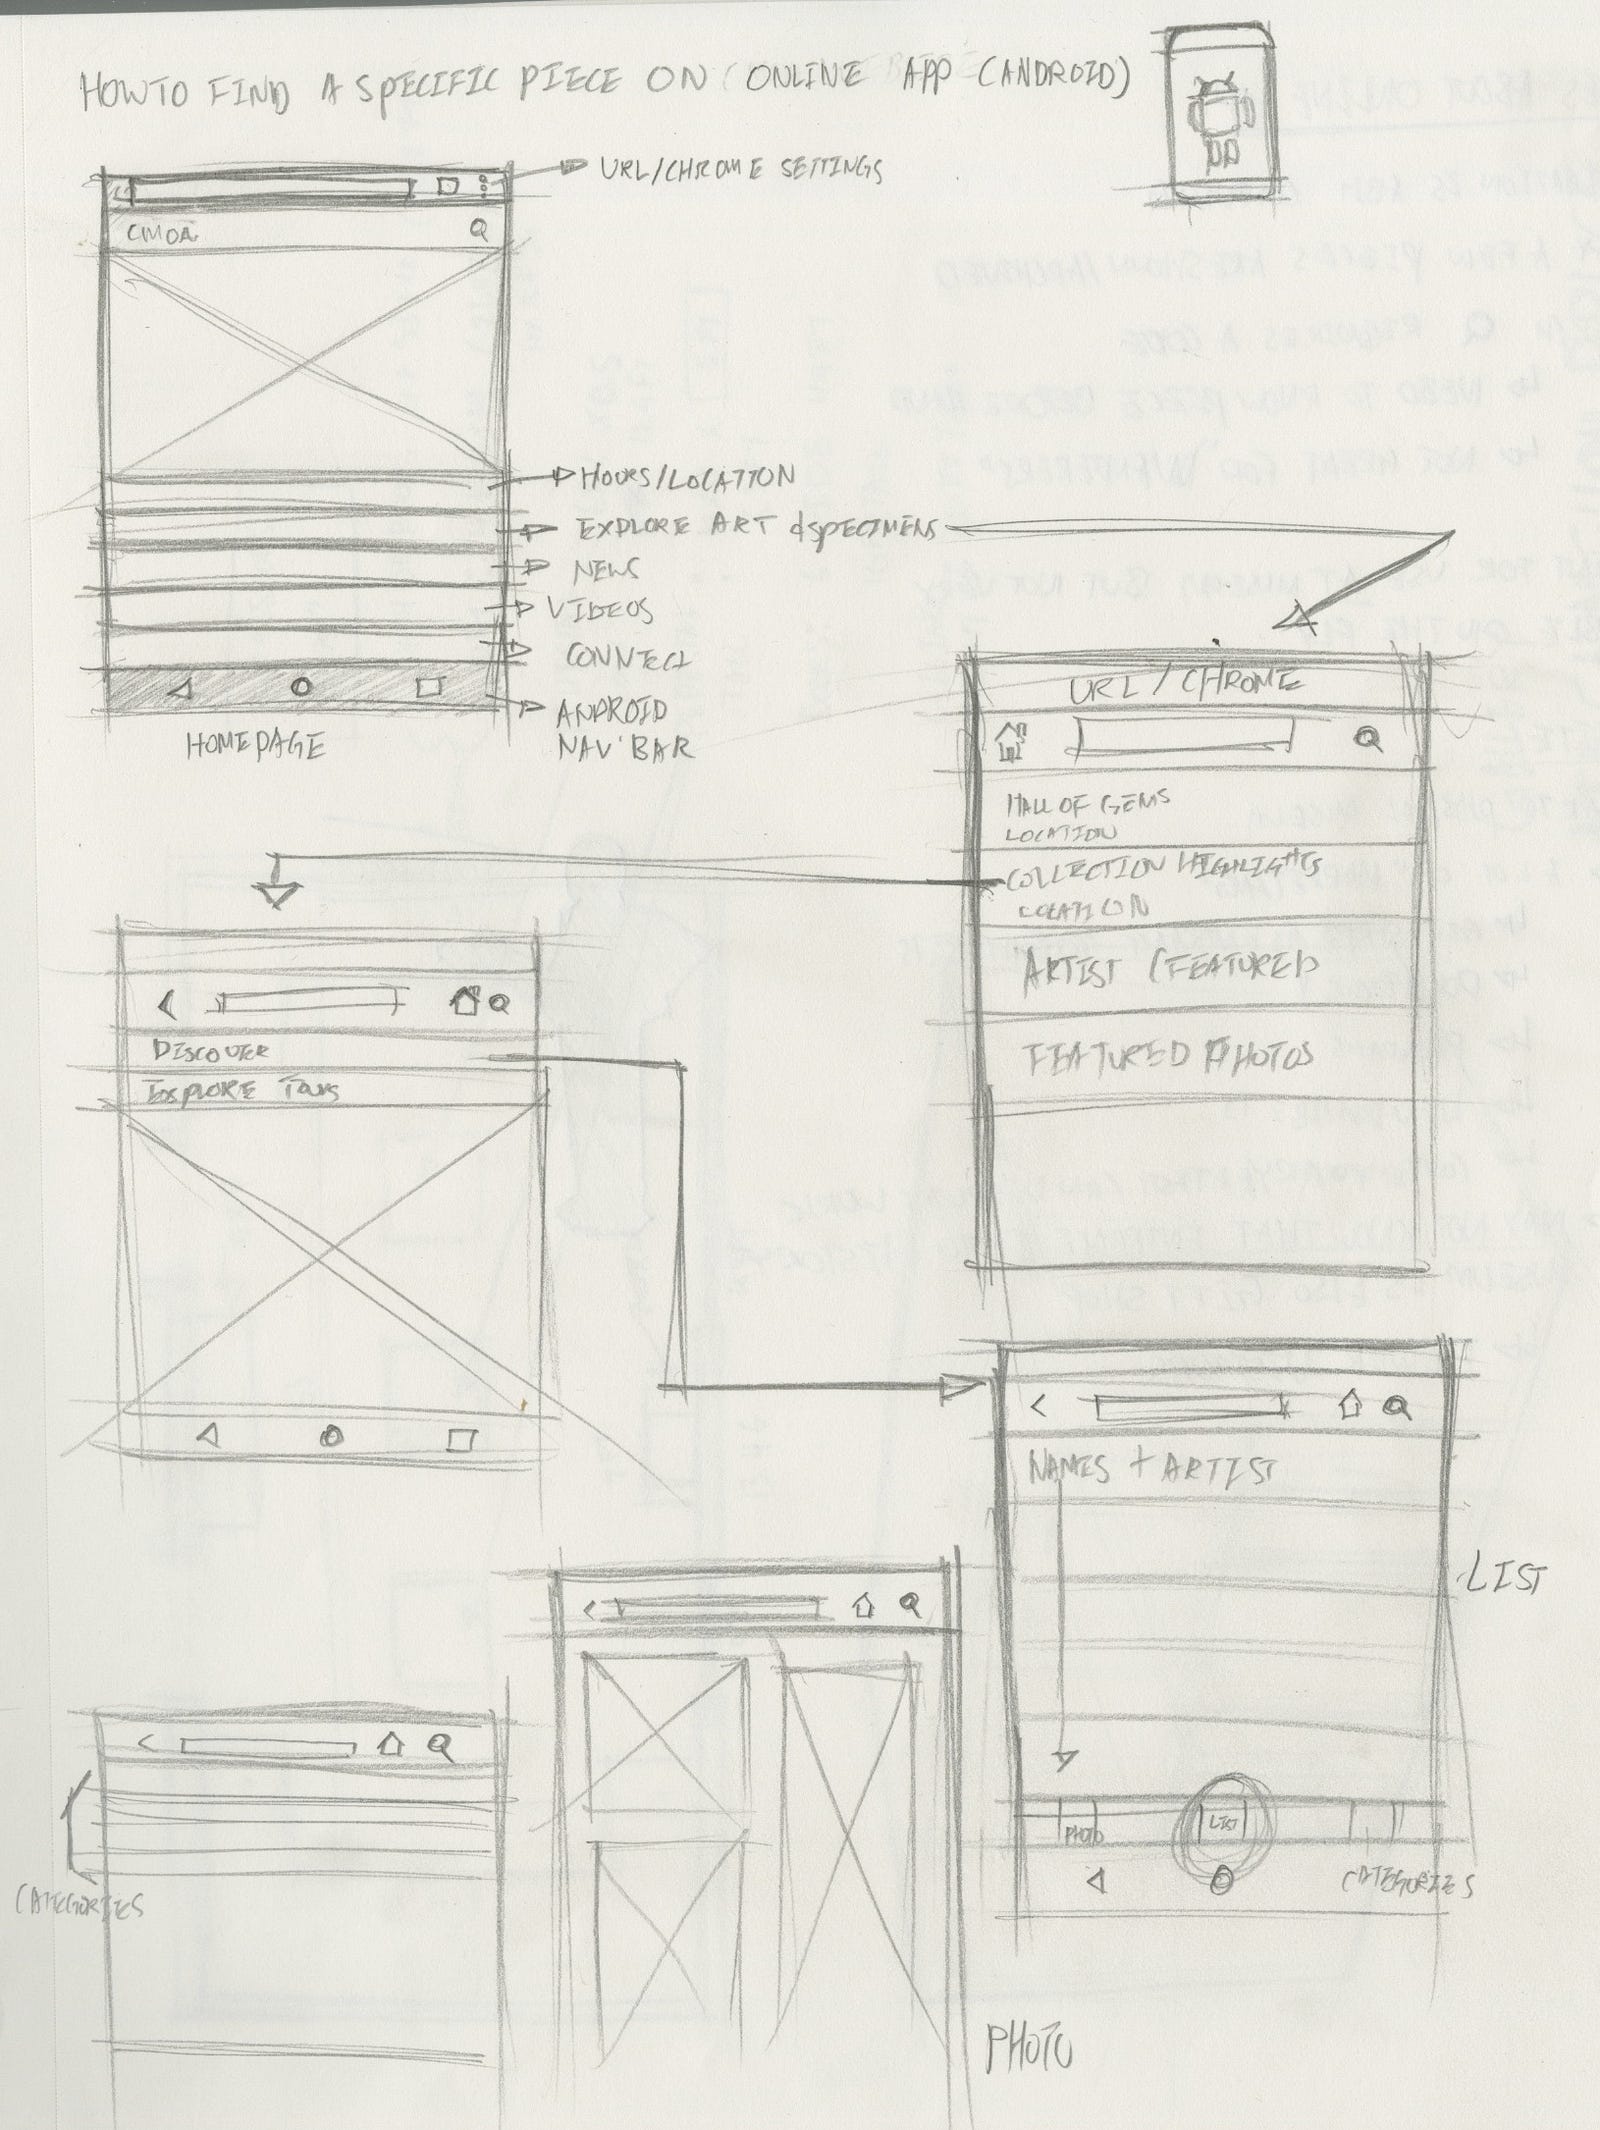 HOW TO FIND A SPECIFIC PIECE ON ONLINE APP (ANDROID)
URL/CHROME SETTINGS
CMOA
HOURS/LOCATION
EXPLORE ART & SPECIMENS
NEWS
VIDEOS
CONNECT
ANDROID
NAV BAR
HOMEPAGE
URL / CHROME
HALL OF GEMS
LOCATION
COLLECTION HIGHLIGHTS
LOCATION
ARTIST (FEATURED
FEATURED PHOTOS
DISCOVER
EXPLORE TOURS
NAMES + ARTIST
LIST
PHOTO
LIST
CATEGORIES
CATEGORIES
PHOTO